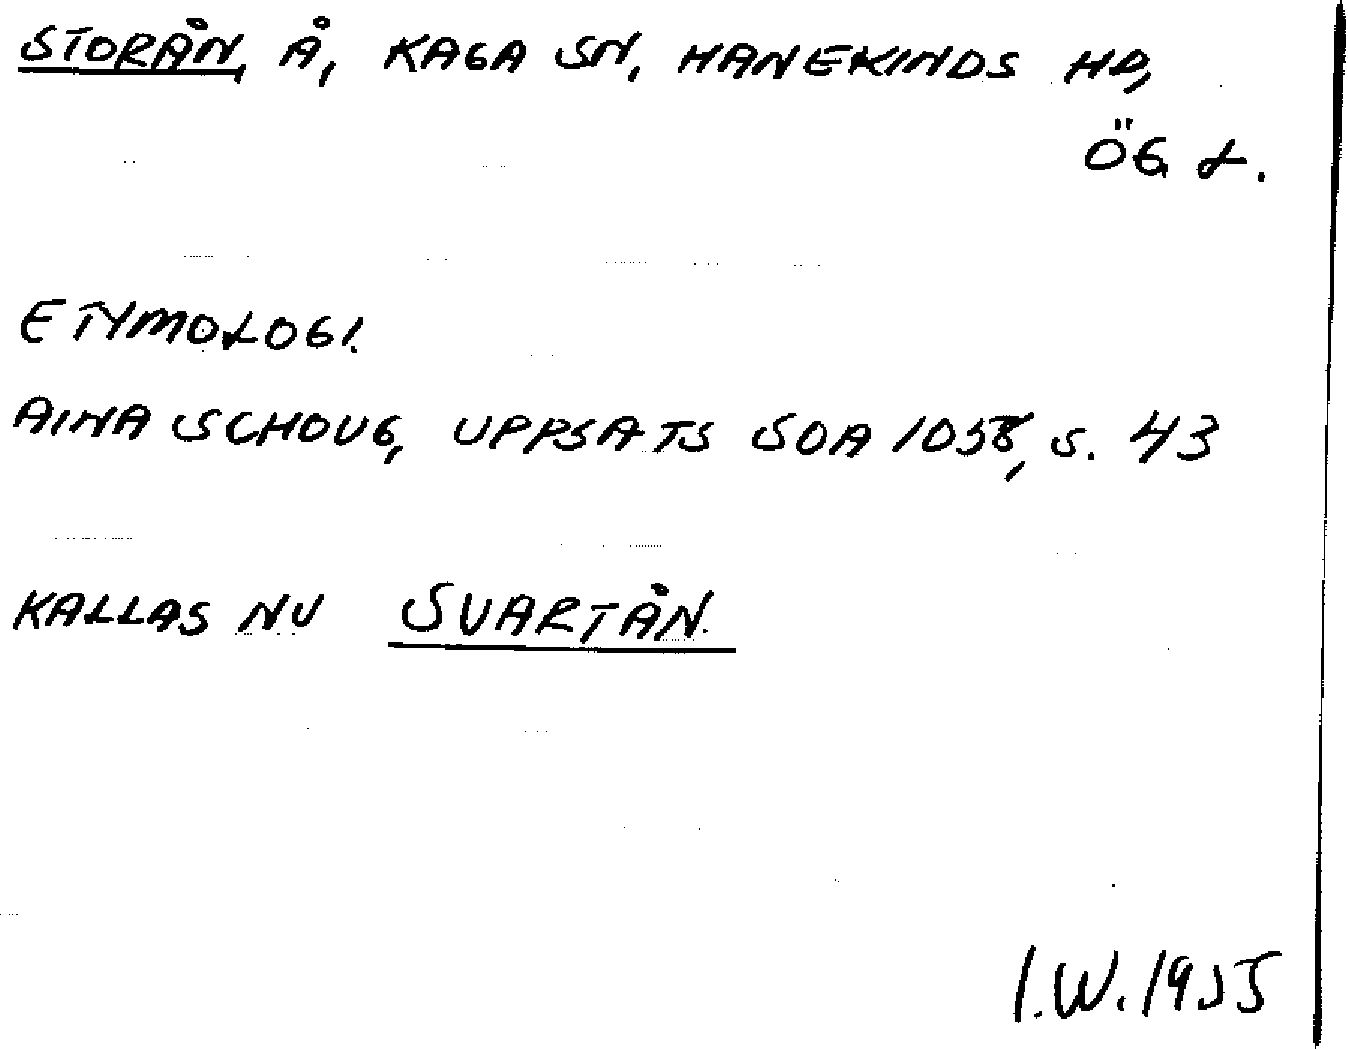 STORÅN, Å, KAGA SN, HANEKINDS HD,
ÖG L.
ETYMOLOGI.
AINA SCHOUG, UPPSATS SOA 1058, S. 43
KALLAS NU SVARTÅN.
I.W. 1955